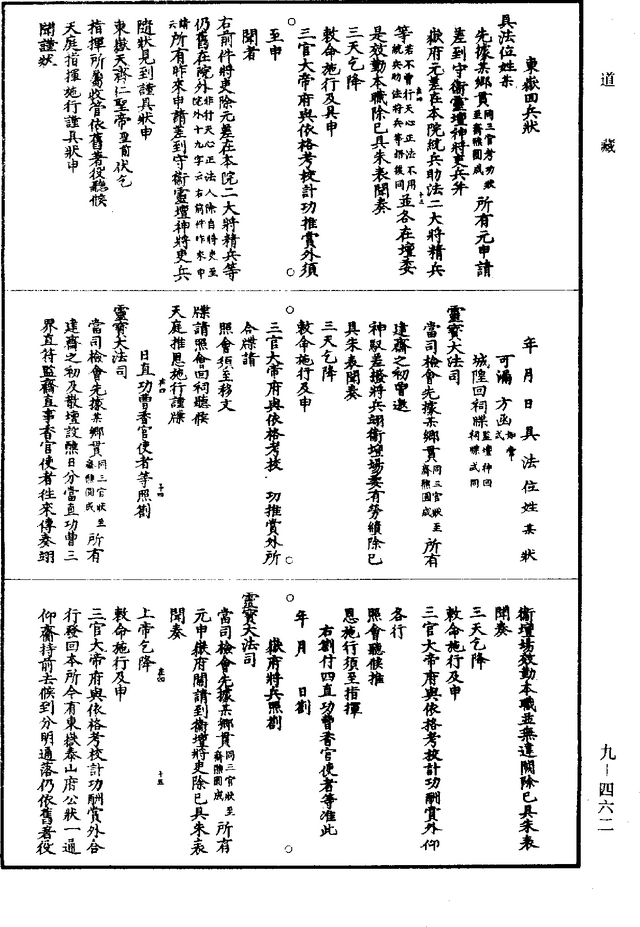 道藏
東嶽回兵狀
具法位姓某
先據某鄉貫同三官考功狀至齋醮圓成所有元申請
差到守衛靈壇神將吏兵并
嶽府元差在本院統兵助法二大將精兵
等若不曾行天心正法不用統兵助法將兵等語後同並各在壇委
是效勤本職除已具朱表聞奏
三天乞降
敕命施行及具申
三官大帝府與依格考校計功推賞外須
至申
聞者
右前件將吏除元差在本院二大將精兵等
仍舊在院外非行天心正法人除自將吏至院外十九字云右前件昨來申請所有昨來申請差到守衛靈壇神將吏兵
隨狀見到謹具狀申
東嶽天齊仁聖帝玉前伏乞
指揮所屬收管依舊著役聽候
天庭指揮施行謹具狀申
聞謹狀
年月日具法位姓某狀
可漏方函如常式
城隍回祠牒監壇神回祠牒式同
靈寶大法司
當司檢會先據某鄉貫同三官狀至齋醮圓成所有
建齋之初曾邀
神馭差撥將兵翊衛壇場委有勞績除已
具朱表聞奏
三天乞降
敕命施行及申
三官大帝府與依格考校功推賞外所
合牒請
照會須至移文
牒請照會回祠聽候
天庭推恩施行謹牒
日直功曹香官使者等照劄
靈寶大法司
當司檢會先據某鄉貫同三官狀至齋醮圓成所有
建齋之初及散壇設醮日分當直功曹三
界直符監齋直事香官使者往來傳奏翊
衛壇場效勤本職並無違闕除已具朱表
聞奏
三天乞降
敕命施行及申
三官大帝府與依格考校計功酬賞外仰
各行
照會聽候推
恩施行須至指揮
右劄付四直功曹香官使者等准此
年月日劄
嶽府將兵照劄
靈寶大法司
當司檢會先據某鄉貫同三官狀至齋醮圓成所有
元申嶽府關請到衛壇將吏除已具朱表
聞奏
上帝乞降
敕命施行及申
三官大帝府與依格考校計功酬賞外合
行發回本所今有東嶽泰山府公狀一通
仰齋持前去候到分明通落仍依舊著役
九—四六二